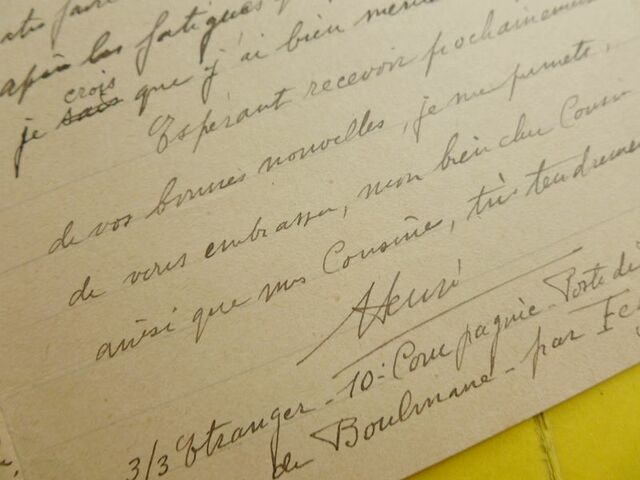 après les fatigues
crois
je sais que j'ai bien
Espérant recevoir prochainement
de vos bonnes nouvelles, je me permets,
de vous embrasser, mon bien cher Cousin
ainsi que mes Cousines, très tendrement
Henri
3/3 Etranger - 10e Compagnie - Poste de
de Boulmane - par Fe